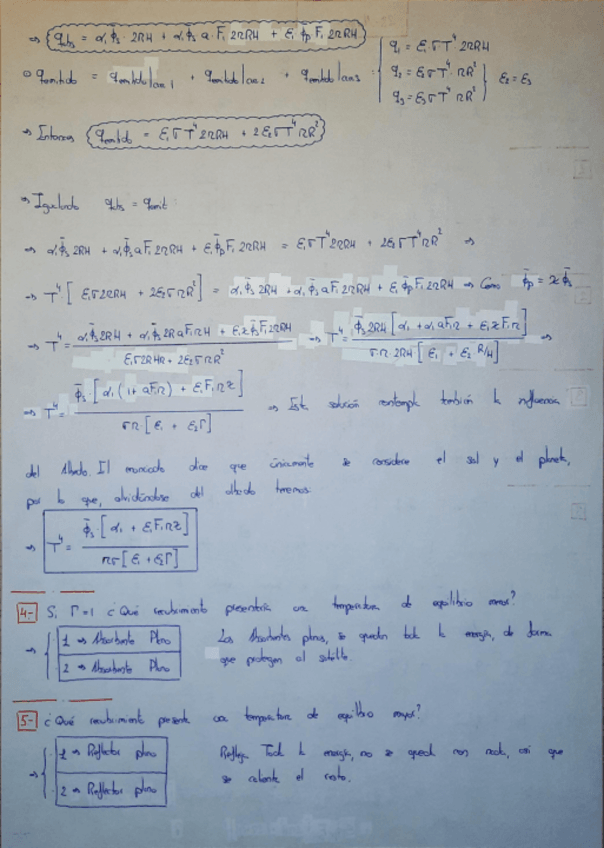 ⇒ q_abs = α₁ Φ̄s 2RH + α₁ Φ̄s a F₁ 2πRH + ε₁ Φ̄p F₁ 2πRH
q_emitido = q_emitido|cara 1 + q_emitido|cara 2 + q_emitido|cara 3
q₁ = ε₁ σ T⁴ 2πRH
q₂ = ε₂ σ T⁴ πR²
q₃ = ε₃ σ T⁴ πR²
ε₂ = ε₃
⇒ Entonces q_emitido = ε₁ σ T⁴ 2πRH + 2ε₂ σ T⁴ πR²
⇒ Igualando q_abs = q_emit
⇒ α₁ Φ̄s 2RH + α₁ Φ̄s a F₁ 2πRH + ε₁ Φ̄p F₁ 2πRH = ε₁ σ T⁴ 2πRH + 2ε₂ σ T⁴ πR² ⇒
⇒ T⁴ [ ε₁ σ 2πRH + 2ε₂ σ πR² ] = α₁ Φ̄s 2RH + α₁ Φ̄s a F₁ 2πRH + ε₁ Φ̄p F₁ 2πRH ⇒ Como Φ̄p = z Φ̄s
⇒ T⁴ = (α₁ Φ̄s 2RH + α₁ Φ̄s 2R a F₁ π H + ε₁ z Φ̄s F₁ 2πRH) / (ε₁ σ 2RHπ + 2ε₂ σ πR²) ⇒ T⁴ = Φ̄s 2RH [ α₁ + α₁ a F₁ π + ε₁ z F₁ π ] / σ π 2RH [ ε₁ + ε₂ R/H ] ⇒
⇒ T⁴ = Φ̄s · [ α₁ (1 + a F₁ π) + ε₁ F₁ π z ] / σ π [ ε₁ + ε₂ Γ ] ⇒ Esta solución contempla también la influencia
del Albedo. El enunciado dice que únicamente se considere el sol y el planeta,
por lo que, olvidándose del albedo tenemos:
⇒ T⁴ = Φ̄s · [ α₁ + ε₁ F₁ π z ] / π σ [ ε₁ + ε₂ Γ ]
4- Si Γ = 1 ¿Qué recubrimiento presentaría una temperatura de equilibrio menor?
1 → Absorbente Plano
2 → Absorbente Plano
Los Absorbentes planos, se quedan toda la energía, de forma
que protegen al satélite.
5- ¿Qué recubrimiento presenta una temperatura de equilibrio mayor?
1 → Reflector plano
2 → Reflector plano
Refleja Toda la energía, no se queda con nada, así que
se calienta el resto.